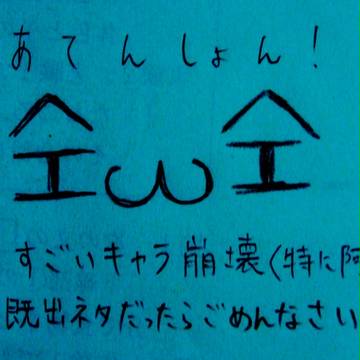 あてんしょん!
へ へ
エωエ
すごいキャラ崩壊(特に阿
既出ネタだったらごめんなさい